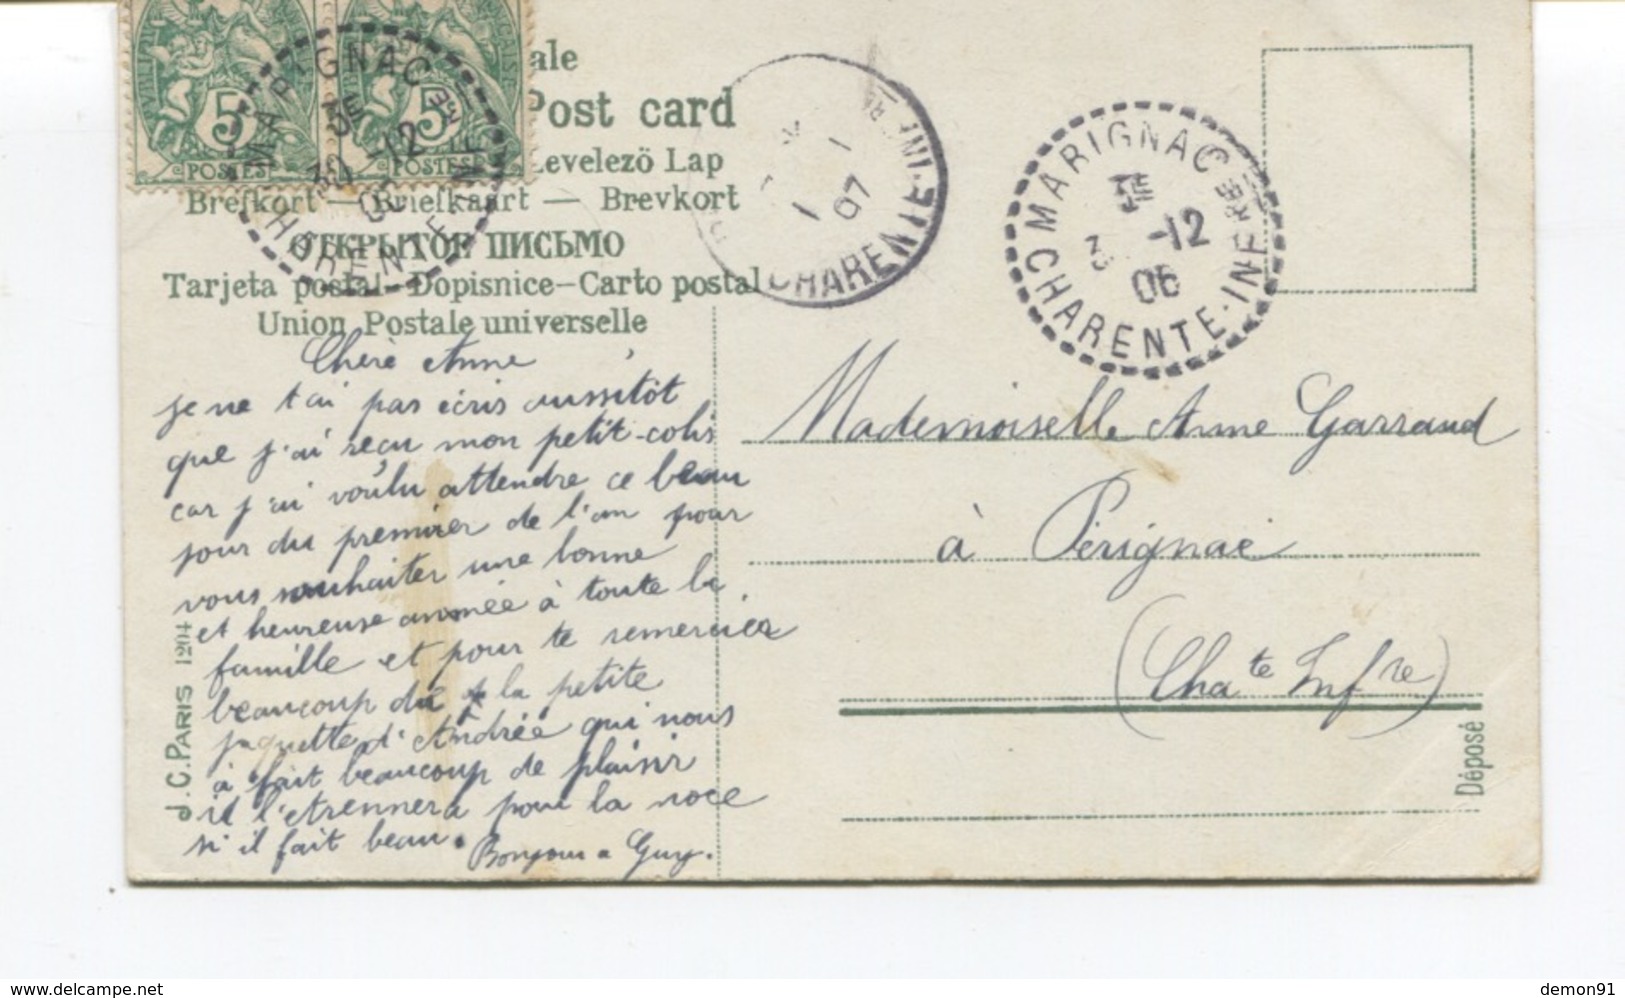 ale
Post card
Levelező Lap
Brefkort — Briefkaart — Brevkort
ОТКРЫТОЕ ПИСЬМО
Tarjeta postal – Dopisnice – Carto postal
Union Postale universelle
5 POSTES
5 POSTES
MARIGNAC
3E
30 -12
CHARENTE-INFRE
1 1
07
CHARENTE-INFRE
MARIGNAC
3E
3 -12
06
CHARENTE-INFRE
Chère Anne
je ne t'ai pas écris aussitôt
que j'ai reçu mon petit-colis
car j'ai voulu attendre ce beau
jour du premier de l'an pour
vous souhaiter une bonne
et heureuse année à toute la
famille et pour te remercier
beaucoup de la petite
jaquette d'Andrée qui nous
à fait beaucoup de plaisir
il l'étrennera pour la noce
si il fait beau. Bonjour a Guy.
Mademoiselle Anne Garraud
à Pérignac
(Chate Infre)
J.C. PARIS 1204
Déposé
delcampe.net
demon91